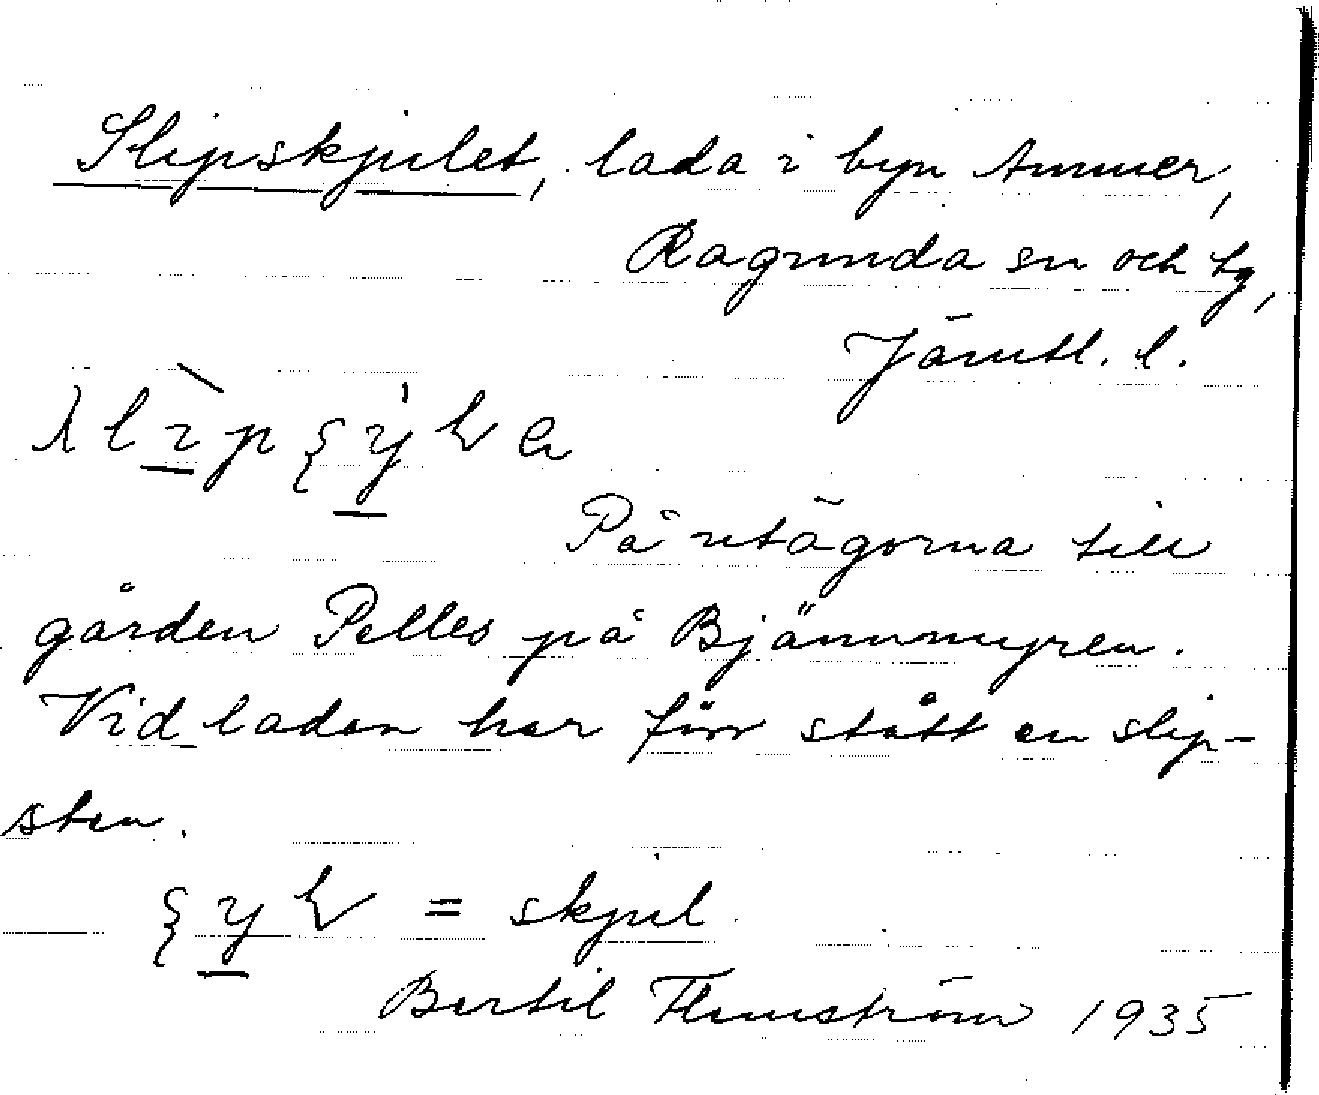 Slipskjulet, lada i byn Ammer,
Ragunda sn och tg,
Jämtl. l.
På utägorna till
gården Pelles på Bjännmyren.
Vid ladan har förr stått en slip-
sten.
= skjul
Bertil Flemström 1935